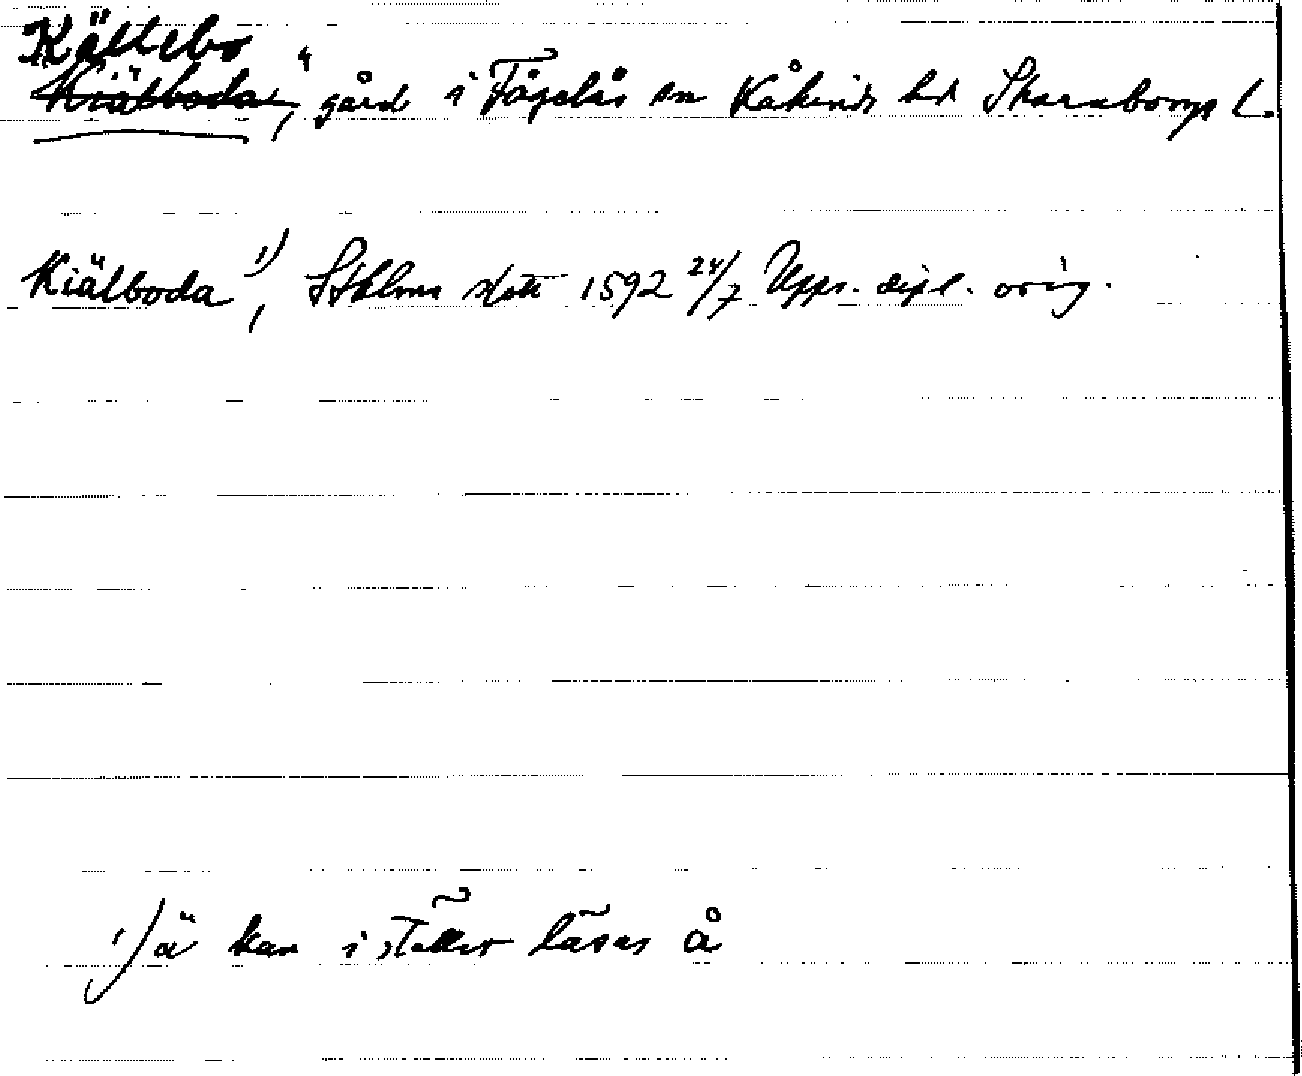 Källebo
Kiälboda, gård i Fågelås sn Kåkinds hd Skaraborgs l.
Kiälboda 1), Sthlms slott 1592 24/7 Upps. dipl. orig.
1) ä kan i stället läsas å